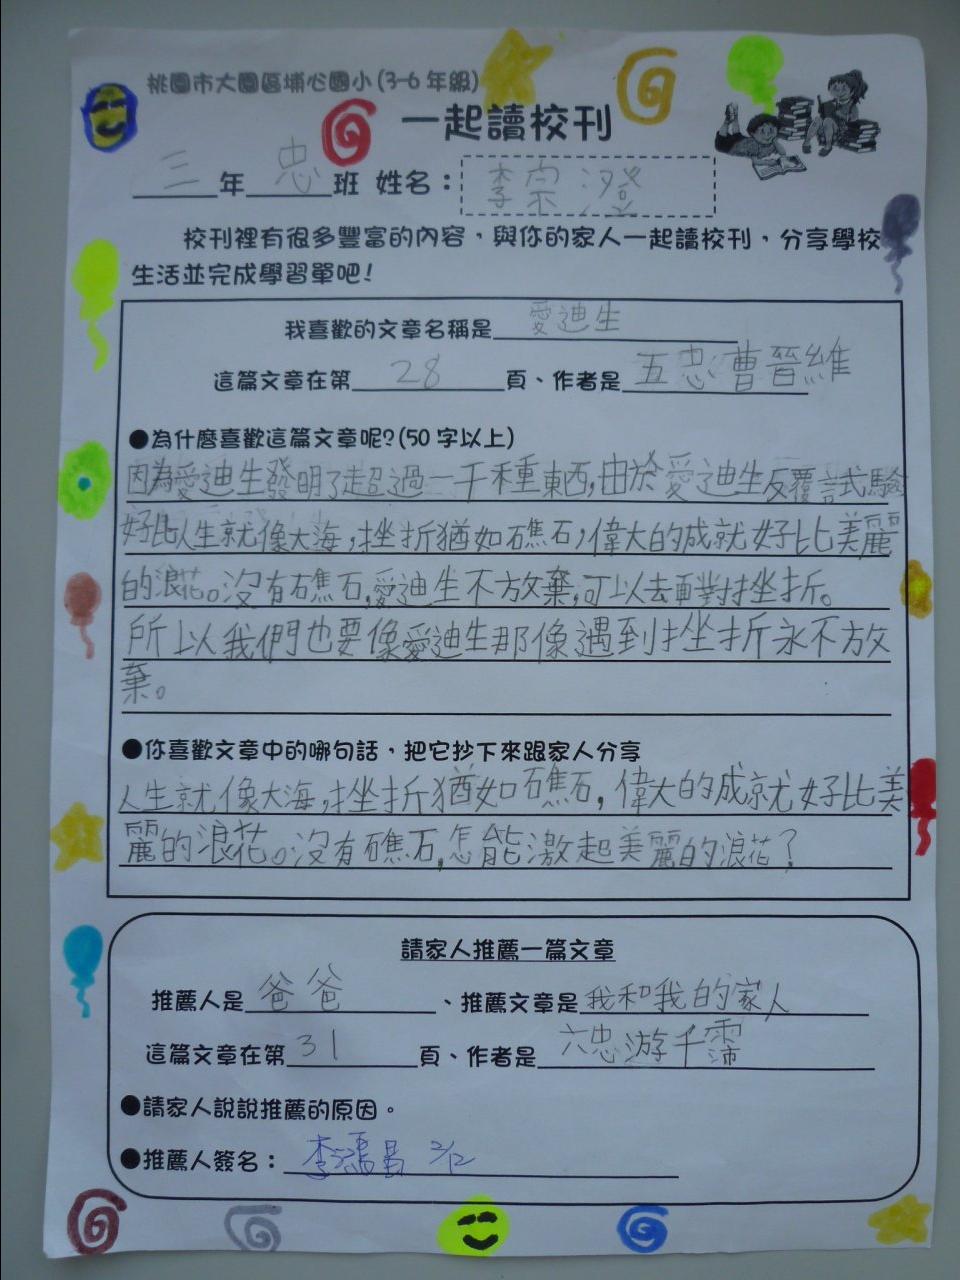 桃園市大園區埔心國小(3-6年級)
一起讀校刊
三年忠班 姓名：李宗澄
校刊裡有很多豐富的內容，與你的家人一起讀校刊，分享學校
生活並完成學習單吧！
我喜歡的文章名稱是愛迪生
這篇文章在第28頁、作者是五忠曹晉維
●為什麼喜歡這篇文章呢?(50字以上)
因為愛迪生發明了超過一千種東西,由於愛迪生反覆試驗
好比人生就像大海,挫折猶如礁石,偉大的成就好比美麗
的浪花。沒有礁石,愛迪生不放棄,可以去面對挫折。
所以我們也要像愛迪生那像遇到挫折永不放
棄。
●你喜歡文章中的哪句話，把它抄下來跟家人分享
人生就像大海,挫折猶如礁石,偉大的成就好比美
麗的浪花。沒有礁石,怎能激起美麗的浪花?
請家人推薦一篇文章
推薦人是爸爸、推薦文章是我和我的家人
這篇文章在第31頁、作者是六忠游千霈
●請家人說說推薦的原因。
●推薦人簽名：李鴻昌 2/12